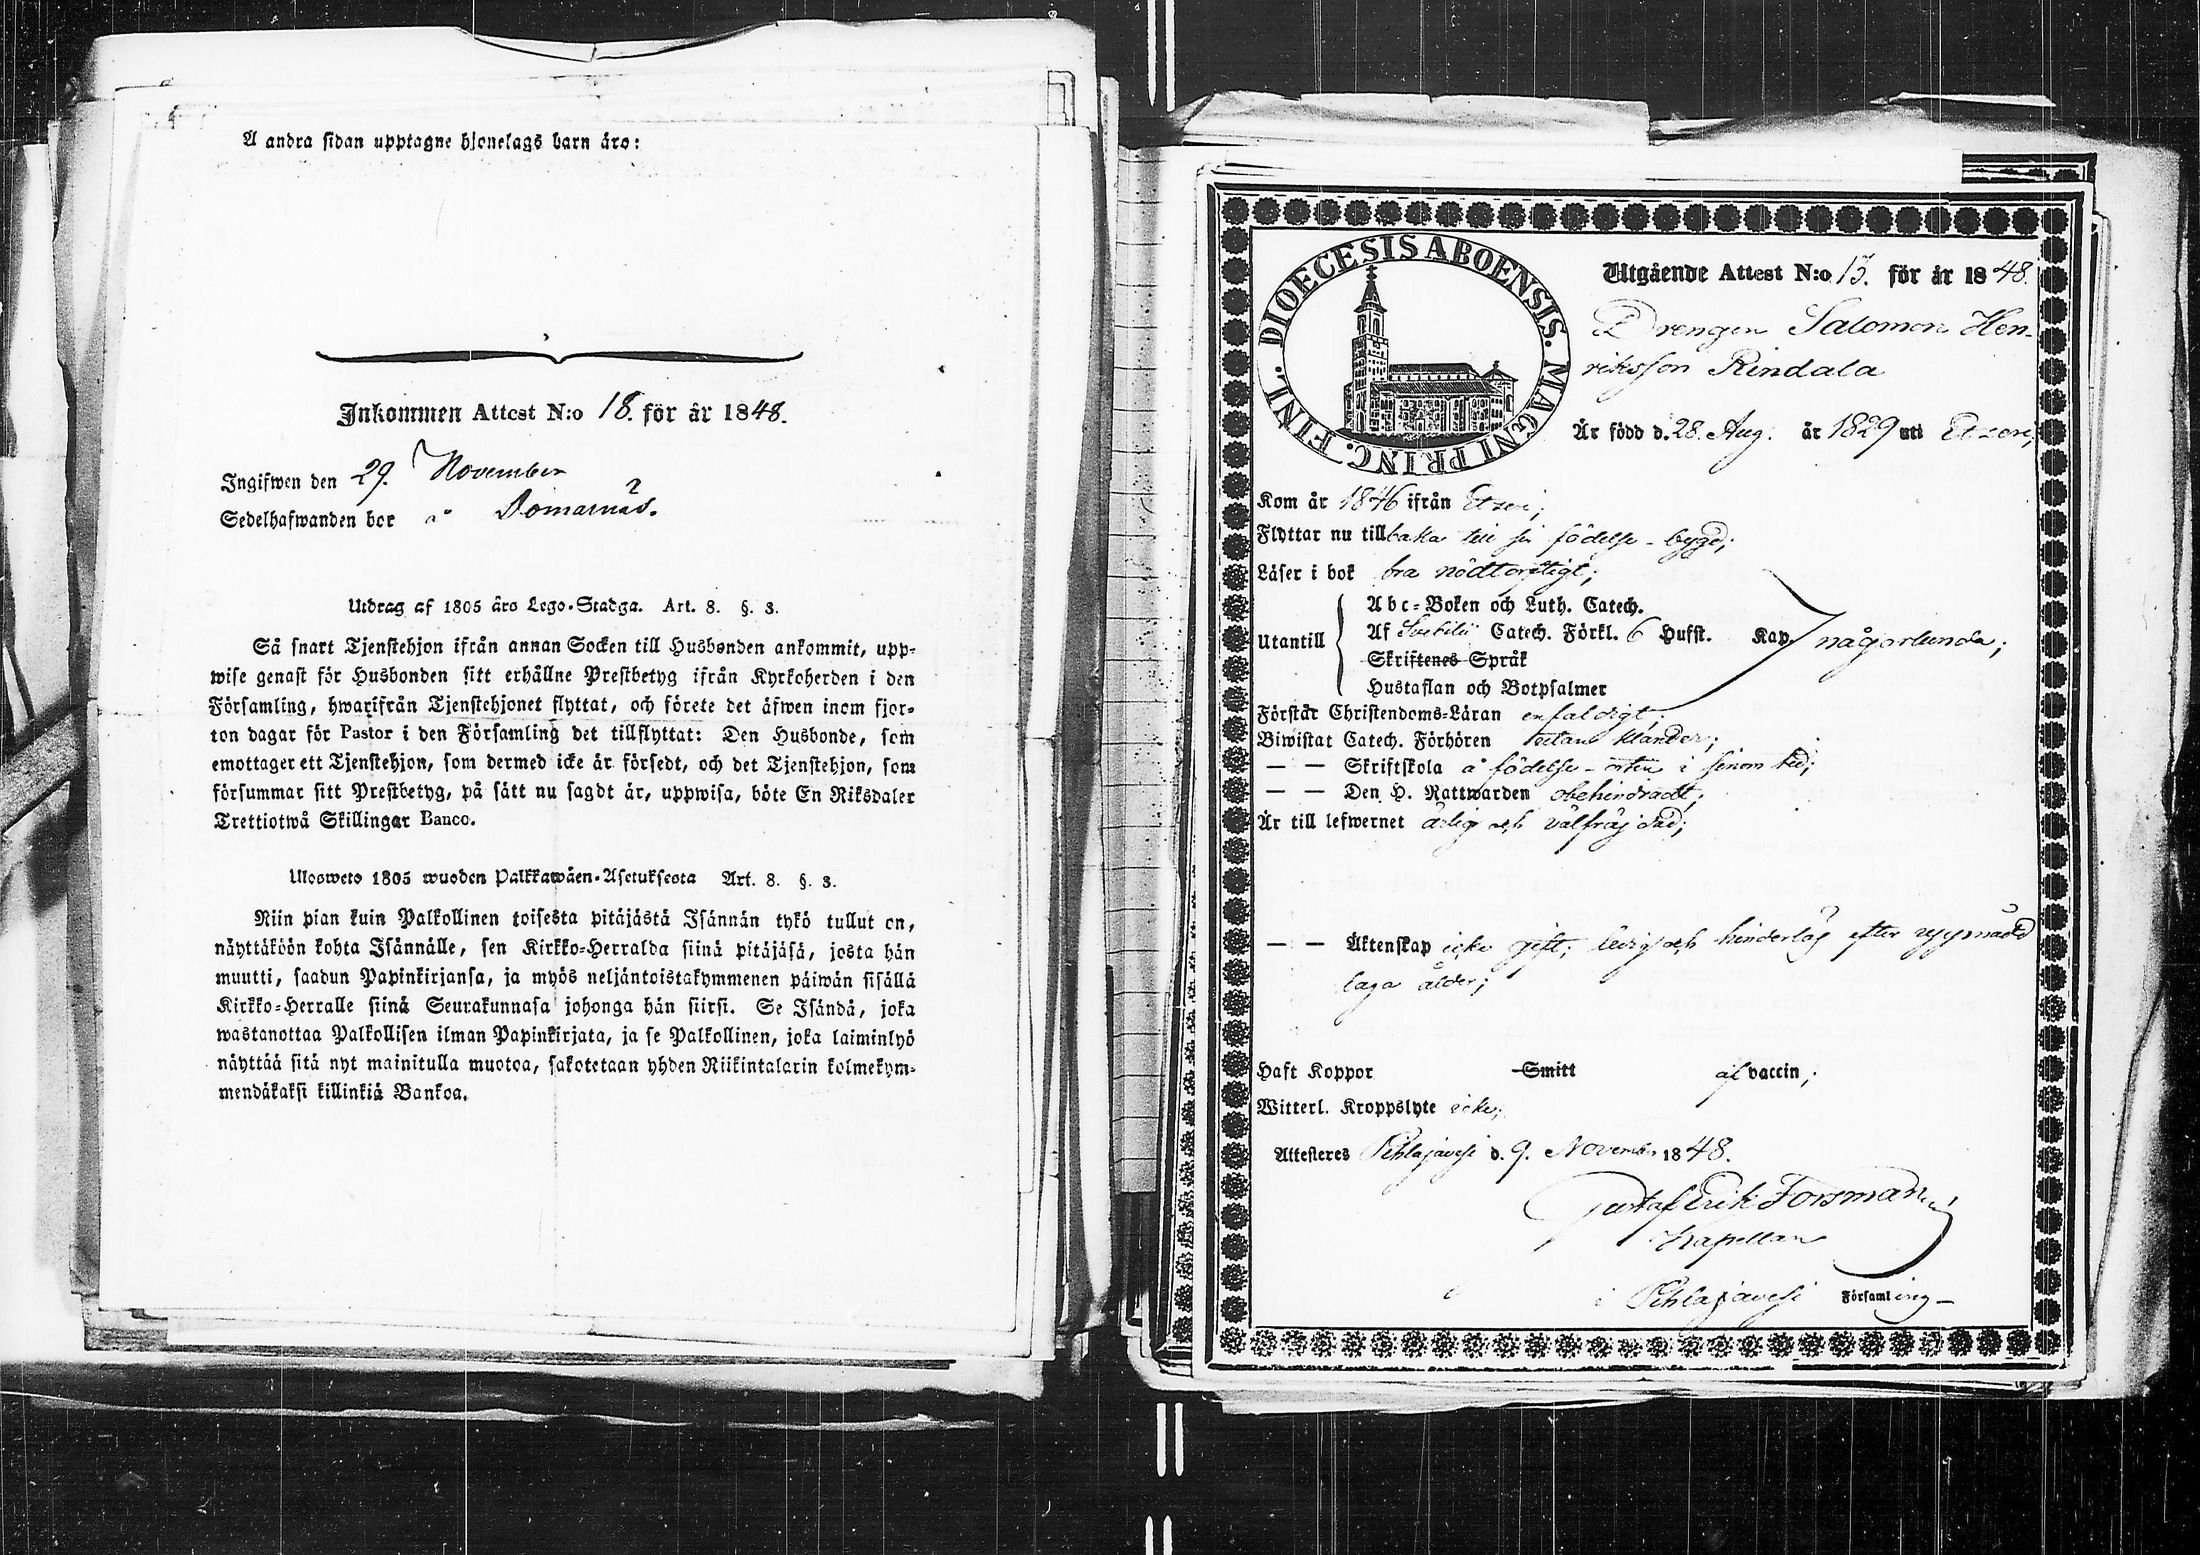 A andra sidan upptagne hjonelags barn äro:
Inkommen Attest N:o 18. för år 1848.
Ingifwen den 29. November
Sedelhafwanden bor å Domarnäs.
Utdrag af 1805 års Lego-Stadga. Art. 8. §. 3.
Så snart Tjenstehjon ifrån annan Socken till Husbonden ankommit, upp-
wise genast för Husbonden sitt erhållne Prestbetyg ifrån Kyrkoherden i den
Församling, hwarifrån Tjenstehjonet flyttat, och förete det äfwen inom fjor-
ton dagar för Pastor i den Församling det tillflyttat: Den Husbonde, som
emottager ett Tjenstehjon, som dermed icke är försedt, och det Tjenstehjon, som
försummar sitt Prestbetyg, på sätt nu sagdt är, uppwisa, böte En Riksdaler
Trettiotwå Skillingar Banco.
Ulosweto 1805 wuoden Palkkawäen-Asetuksesta Art. 8. §. 3.
Niin pian kuin Palkollinen toisesta pitäjästä Isännän tykö tullut on,
näyttäköön kohta Isännälle, sen Kirkko-Herralda siinä pitäjäsä, josta hän
muutti, saadun Papinkirjansa, ja myös neljäntoistakymmenen päiwän sisällä
Kirkko-Herralle siinä Seurakunnasa johonga hän siirsi. Se Isändä, joka
wastanottaa Palkollisen ilman Papinkirjata, ja se Palkollinen, joka laiminlyö
näyttää sitä nyt mainitulla muotoa, sakotetaan yhden Riikintalarin kolmekym-
mendäkaksi killinkiä Bankoa.
DIOECESIS ABOENSIS. MAGNI PRINC. FINL.
Utgående Attest N:o 13. för år 1848.
Drengen Salomon Hen-
riksson Rindala
Är född d. 28. Aug. år 1829 uti Etseri,
Kom år 1846 ifrån Etseri;
Flyttar nu tillbaka till sin födelse-bygd;
Läser i bok bra nödtorftigt;
Abc-Boken och Luth. Catech.
Utantill Af Svebilii Catech. Förkl. 6 Hufst. Kap. någorlunda;
Skriftenes Språk
Hustaflan och Botpsalmer
Förstår Christendoms-Läran enfaldigt;
Biwistat Catech. Förhören utan klander;
— — Skriftskola å födelse-orten i sinom tid;
— — Den H. Nattwarden obehindradt;
Är till lefwernet ärlig och välfräjdad;
— — Äktenskap icke gift; ledig och hinderlös efter uppnådd
laga ålder;
Haft Koppor Smitt af vaccin;
Witterl. Kroppslyte icke;
Attesteres Pihlajavesi d. 9. November 1848.
Gustaf Erik Forsman
Kapellan
i Pihlajavesi Församling—